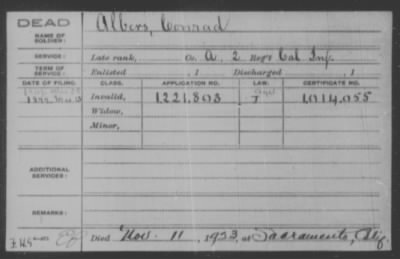 DEAD
NAME OF SOLDIER:
Albers, Conrad
SERVICE:
Late rank, Co. A. 2 Reg't Cal Inf.
TERM OF SERVICE:
Enlisted , 1 Discharged , 1
DATE OF FILING. CLASS. APPLICATION NO. LAW. CERTIFICATE NO.
Invalid, 1,221,803 J 1,014,055
Widow,
Minor,
ADDITIONAL SERVICES:
REMARKS:
Died Nov. 11, 1923, at Sacramento,